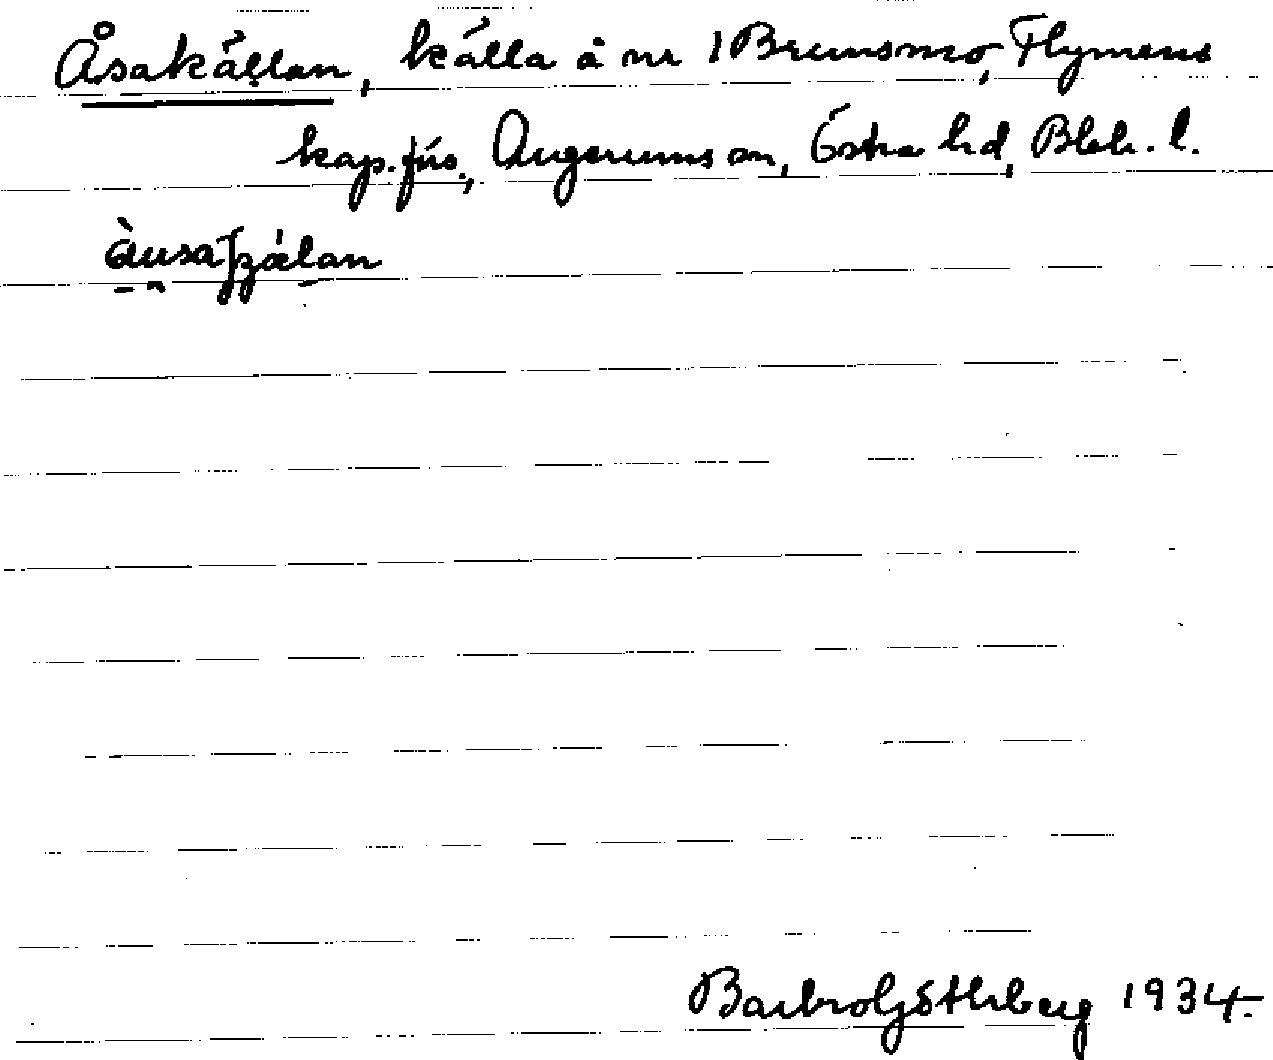 Åsakällan, källa å nr 1 Brunsmo, Flymens
kap.förs., Augerums sn, Östra hd, Blek. l.
Barbro Göthberg 1934.